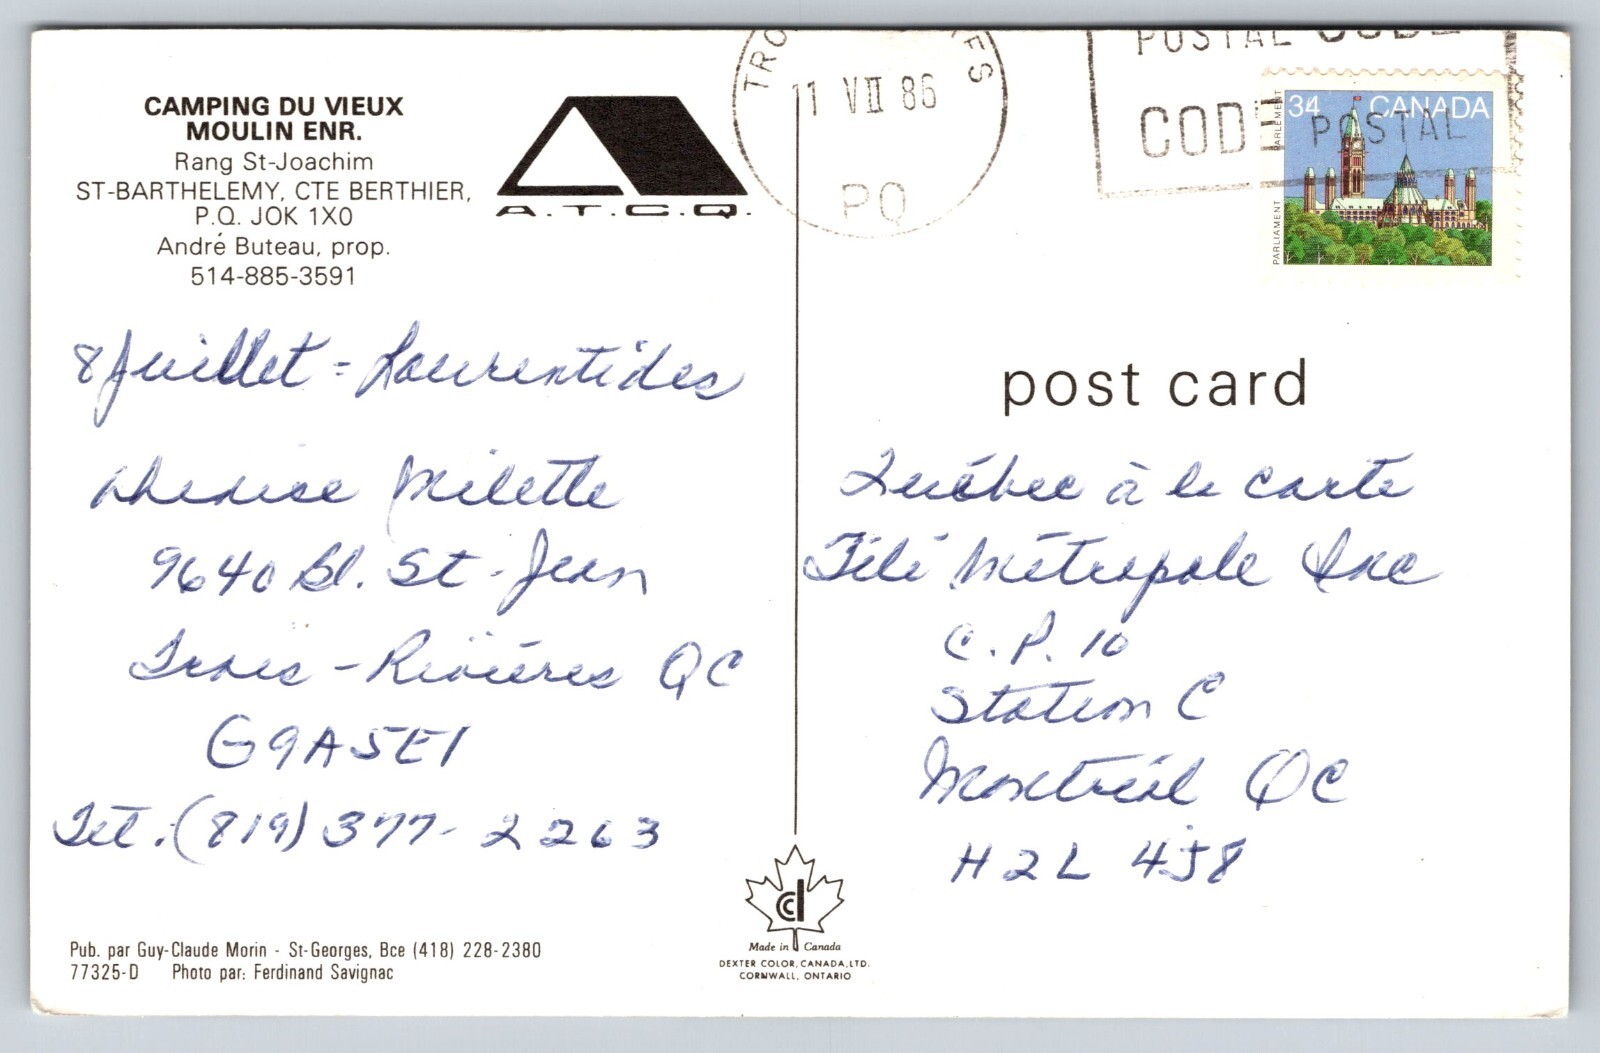 CAMPING DU VIEUX
MOULIN ENR.
Rang St-Joachim
ST-BARTHELEMY, CTE BERTHIER,
P.Q. JOK 1X0
André Buteau, prop.
514-885-3591
A.T.C.Q.
11 VII 86
PQ
POSTAL CODE
CODE POSTAL
34 CANADA
PARLIAMENT PARLEMENT
8 Juillet = Laurentides
Milette
9640 Bl. St-Jean
Trois-Rivières QC
G9A5E1
Tel. (819) 377-2263
post card
Québec à la carte
Télé Métropole Inc
C.P. 10
Station C
Montréal QC
H2L 4J8
Pub. par Guy-Claude Morin - St-Georges, Bce (418) 228-2380
77325-D Photo par: Ferdinand Savignac
Made in Canada
DEXTER COLOR, CANADA, LTD.
CORNWALL, ONTARIO